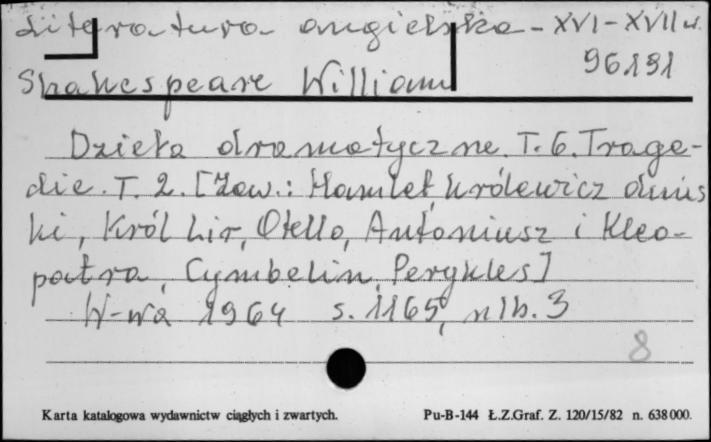 Literatura angielska - XVI-XVII w.
96191
Shakespeare William
Dzieła dramatyczne. T. 6. Trage-
die. T. 2. [Zaw.: Hamlet, królewicz duńs
ki, Król Lir, Otello, Antoniusz i Kleo-
patra, Cymbelin, Perykles]
W-wa 1964 s. 1165, nlb. 3
8
Karta katalogowa wydawnictw ciągłych i zwartych. Pu-B-144 Ł.Z.Graf. Z. 120/15/82 n. 638000.